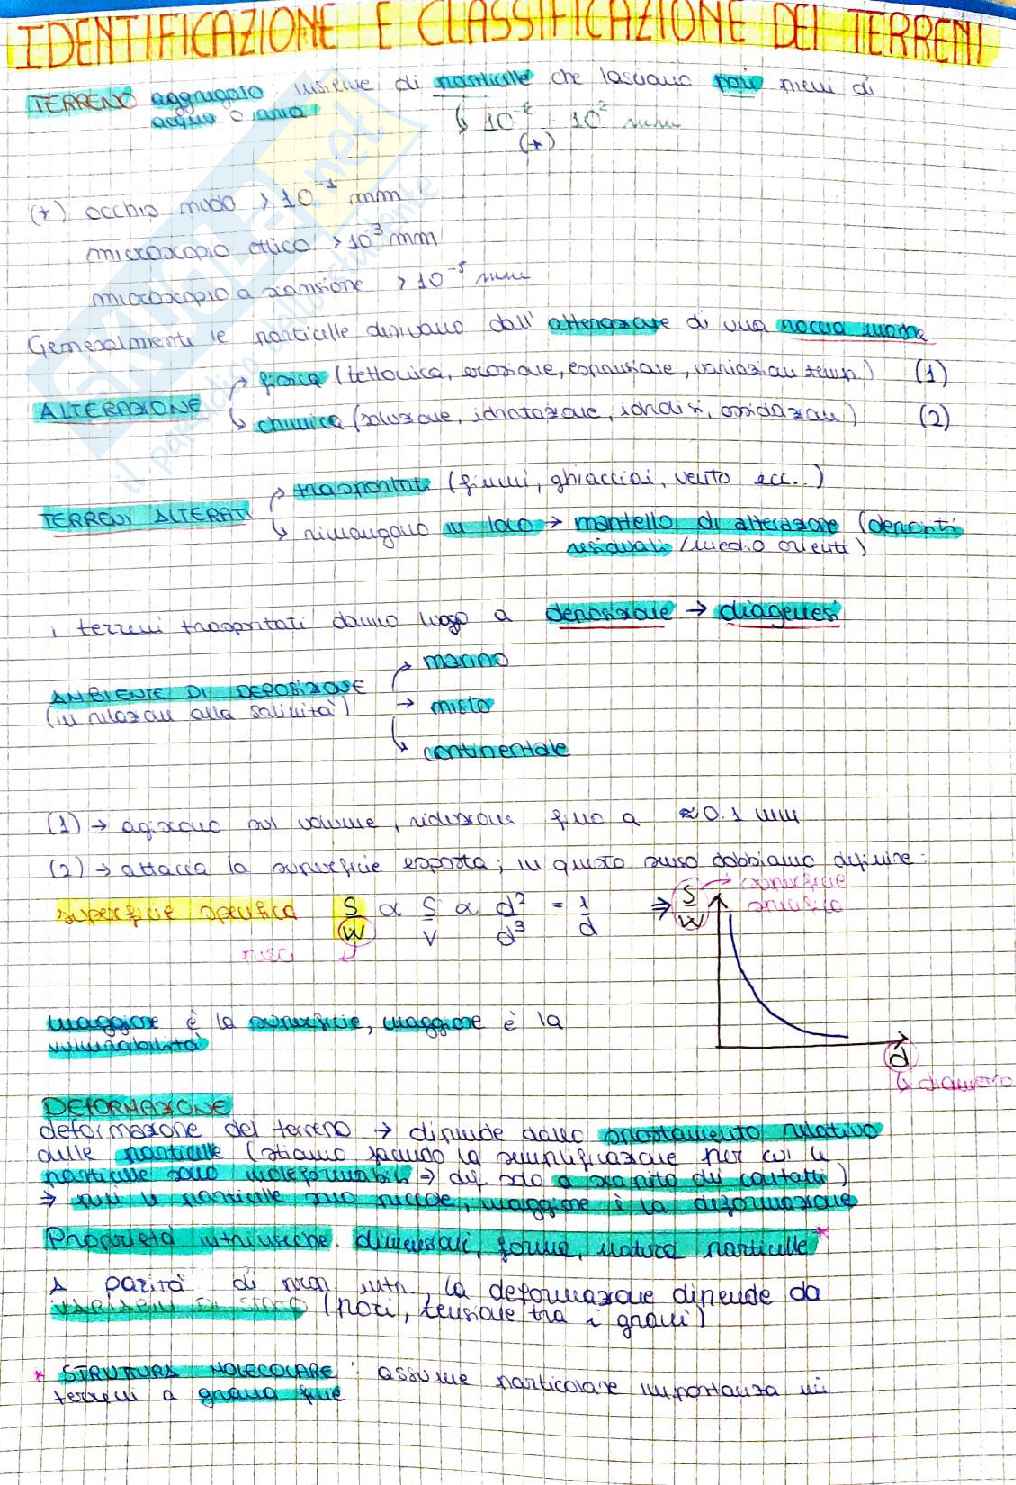 IDENTIFICAZIONE E CLASSIFICAZIONE DEI TERRENI
TERRENO aggregato insieme di particelle che lasciano pori pieni di
acqua o aria
↳ 10⁻² ÷ 10² mm
(*)
(*) occhio nudo > 10⁻¹ mm
microscopio ottico > 10³ mm
microscopio a scansione > 10⁻⁵ mm
Generalmente le particelle derivano dall'alterazione di una roccia madre
fisica (tettonica, erosione, espansione, variazioni temp.) (1)
ALTERAZIONE
chimica (soluzione, idratazione, idrolisi, ossidazione) (2)
trasportati (fiumi, ghiacciai, vento ecc..)
TERRENI ALTERATI
rimangono in loco → mantello di alterazione (depositi
residuali / medio oriente)
i terreni trasportati danno luogo a deposizione → diagenesi
marino
AMBIENTE DI DEPOSIZIONE
(in relazione alla salinità) → misto
continentale
(1) → agiscono sul volume, riduzione fino a ≈ 0.1 mm
(2) → attacca la superficie esposta; in questo senso dobbiamo definire:
superficie specifica S/W ∝ S/V ∝ d²/d³ = 1/d ⇒ S/W → superficie
specifica
maggiore è la superficie, maggiore è la
vulnerabilità
d
↳ diametro
DEFORMAZIONE
deformazione del terreno → dipende dallo spostamento relativo
delle particelle (stiamo facendo la semplificazione per cui le
particelle sono indeformabili → def solo a scapito dei contatti)
⇒ più le particelle sono piccole, maggiore è la deformazione
Proprietà intrinseche: dimensioni, forma, natura particelle *
A parità di prop. intr. la deformazione dipende da
VARIABILI DI STATO (pori, tensione tra i grani)
* STRUTTURA MOLECOLARE: assume particolare importanza in
terreni a grana fine
SKUOLA.net